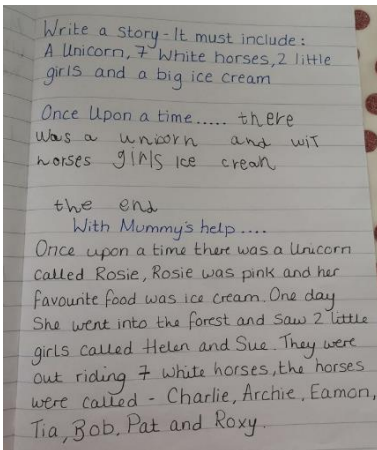 Write a story - It must include:
A Unicorn, 7 White horses, 2 little
girls and a big ice cream
Once Upon a time..... there
was a unicorn and wiT
horses girls Ice crean
the end
With Mummy's help ....
Once upon a time there was a Unicorn
called Rosie, Rosie was pink and her
favourite food was ice cream. One day
She went into the forest and saw 2 little
girls called Helen and Sue. They were
out riding 7 white horses, the horses
were called - Charlie, Archie, Eamon,
Tia, Bob, Pat and Roxy.